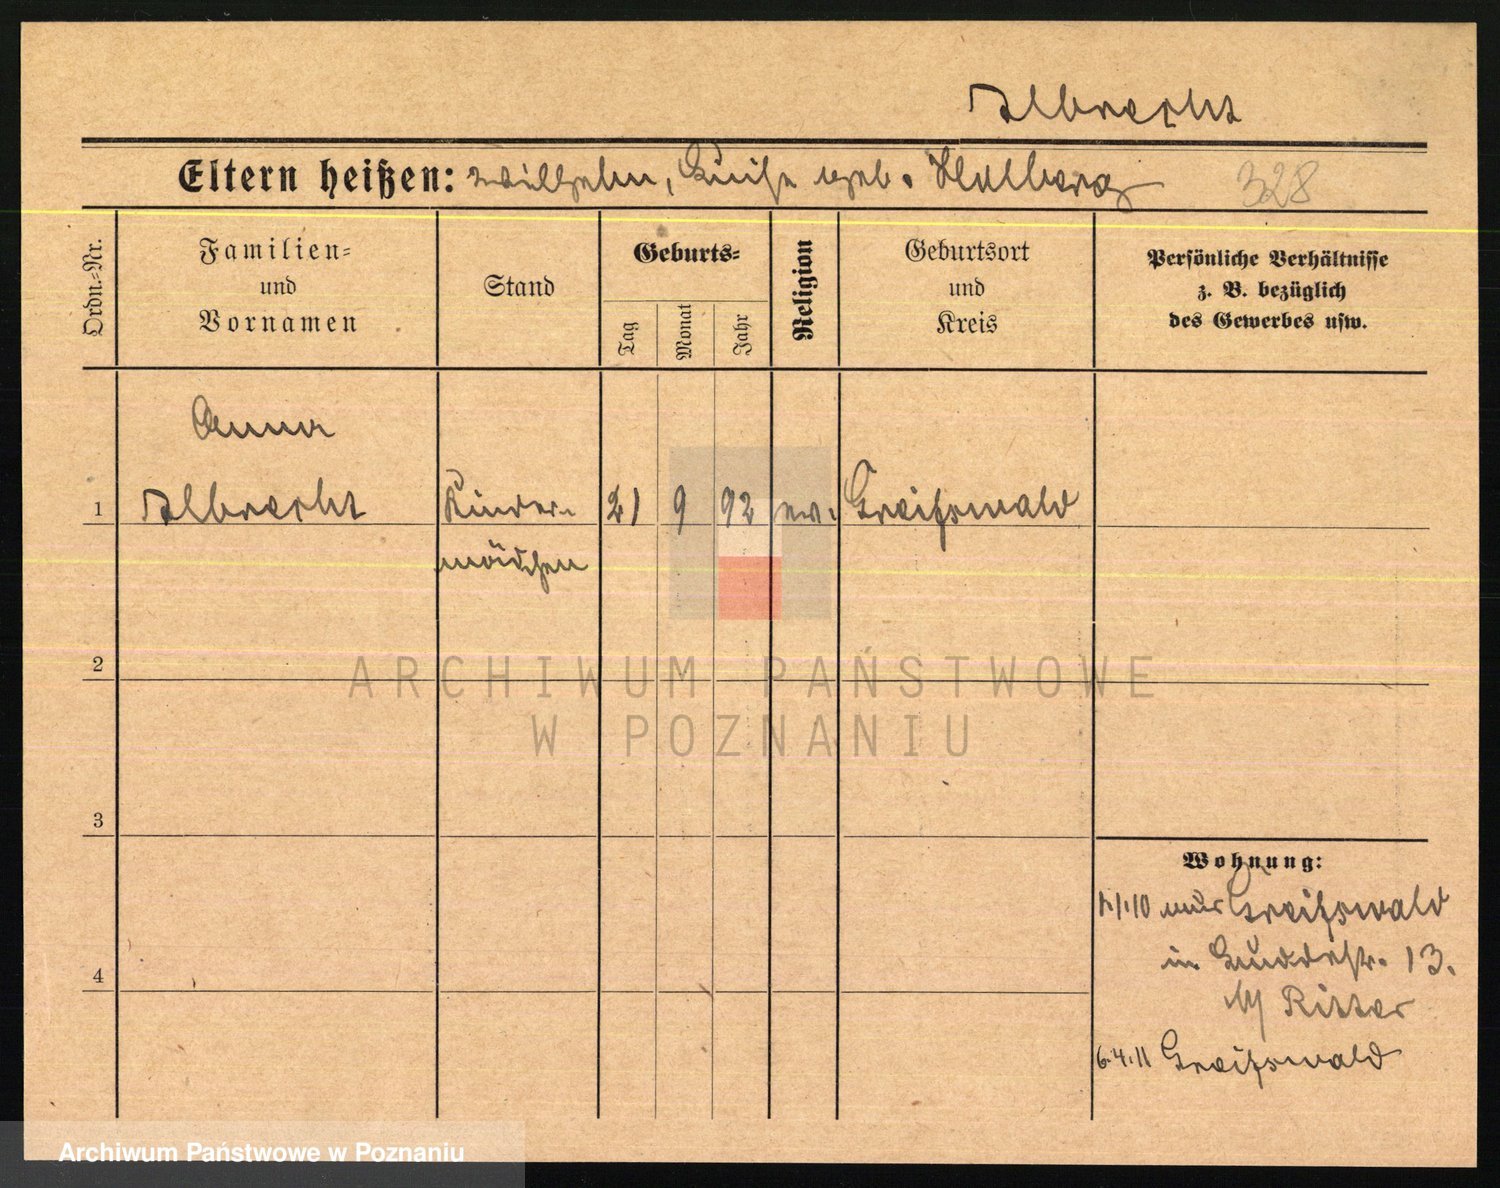 Albrecht
Eltern heißen: Wilhelm, Luise geb. Hallberg 328
Ordn.-Nr.
Familien-
und
Vornamen
Stand
Geburts-
Tag
Monat
Jahr
Religion
Geburtsort
und
Kreis
Persönliche Verhältnisse
z. B. bezüglich
des Gewerbes usw.
Anna
1 Albrecht Kinder- 21 9 92 ev. Greifswald
mädchen
2
3
4
Wohnung:
1.10 aus Greifswald
in 13.
b/ Ritter
6.4.11 Greifswald
ARCHIWUM PAŃSTWOWE
W POZNANIU
Archiwum Państwowe w Poznaniu